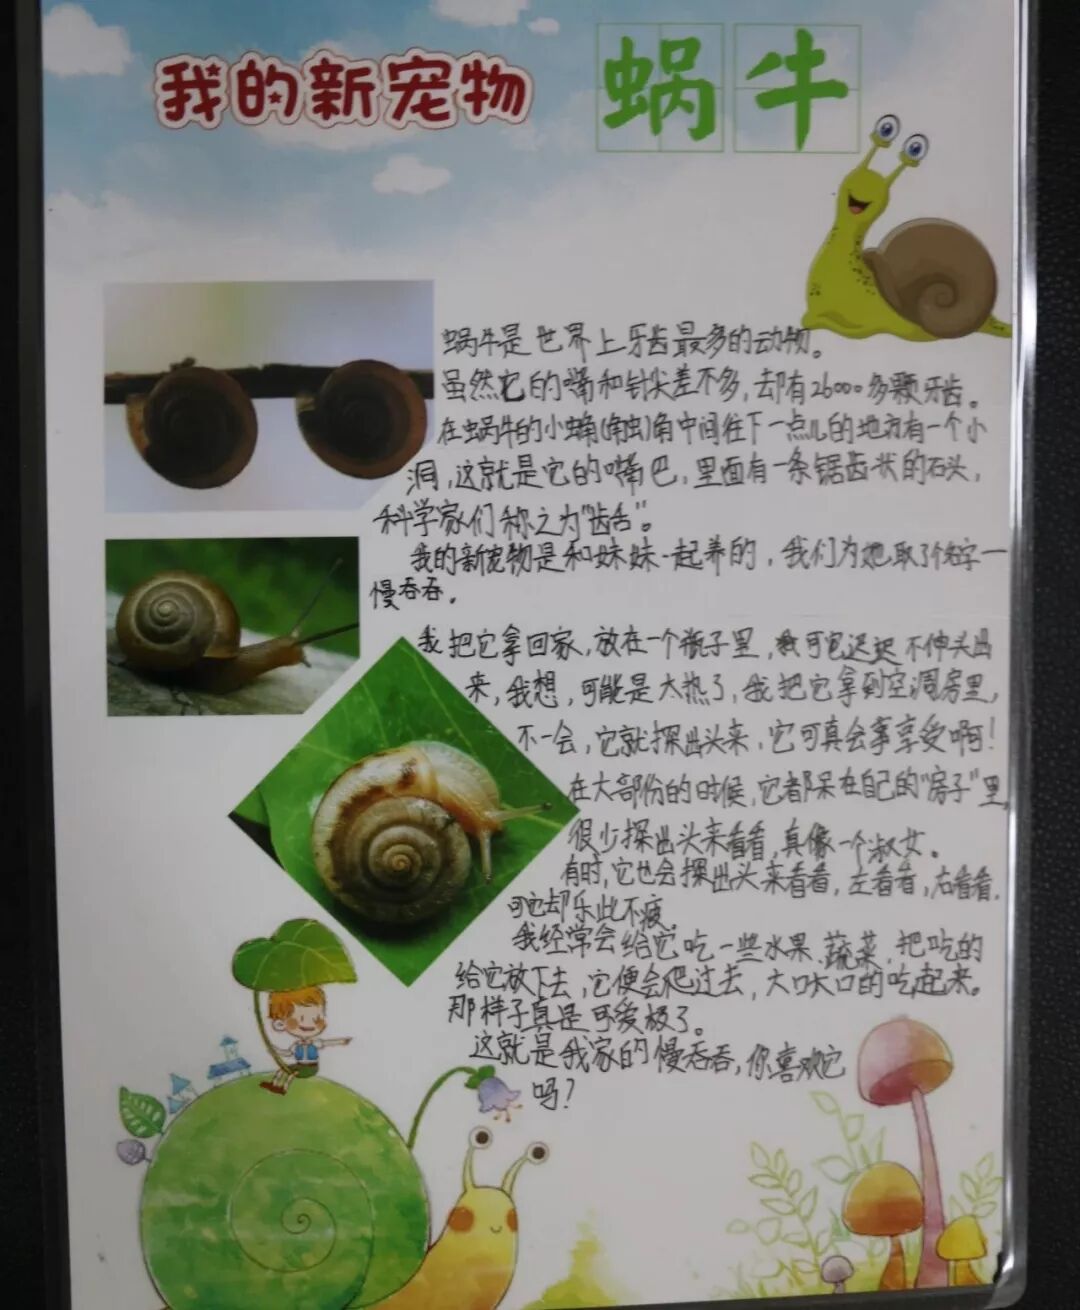 我的新宠物 蜗牛
蜗牛是世界上牙齿最多的动物。
虽然它的嘴和针尖差不多，却有26000多颗牙齿。
在蜗牛的小触角中间往下一点儿的地方有一个小
洞，这就是它的嘴巴，里面有一条锯齿状的石头，
科学家们称之为“齿舌”。
我的新宠物是和妹妹一起养的，我们为她取了个名字一
慢吞吞。
我把它拿回家，放在一个瓶子里，我可它迟迟不伸头出
来，我想，可能是太热了，我把它拿到空调房里，
不一会，它就探出头来，它可真会事享受啊！
在大部份的时候，它都呆在自己的“房子”里，
很少探出头来看看，真像一个淑女。
有时，它也会探出头来看看，左看看，右看看，
可它却乐此不疲。
我经常会给它吃一些水果、蔬菜，把吃的
给它放下去，它便会爬过去，大口大口的吃起来。
那样子真是可爱极了。
这就是我家的慢吞吞，你喜欢它
吗？